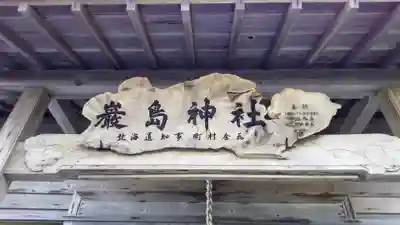 巖島神社
北海道知事 町村金五
奉納